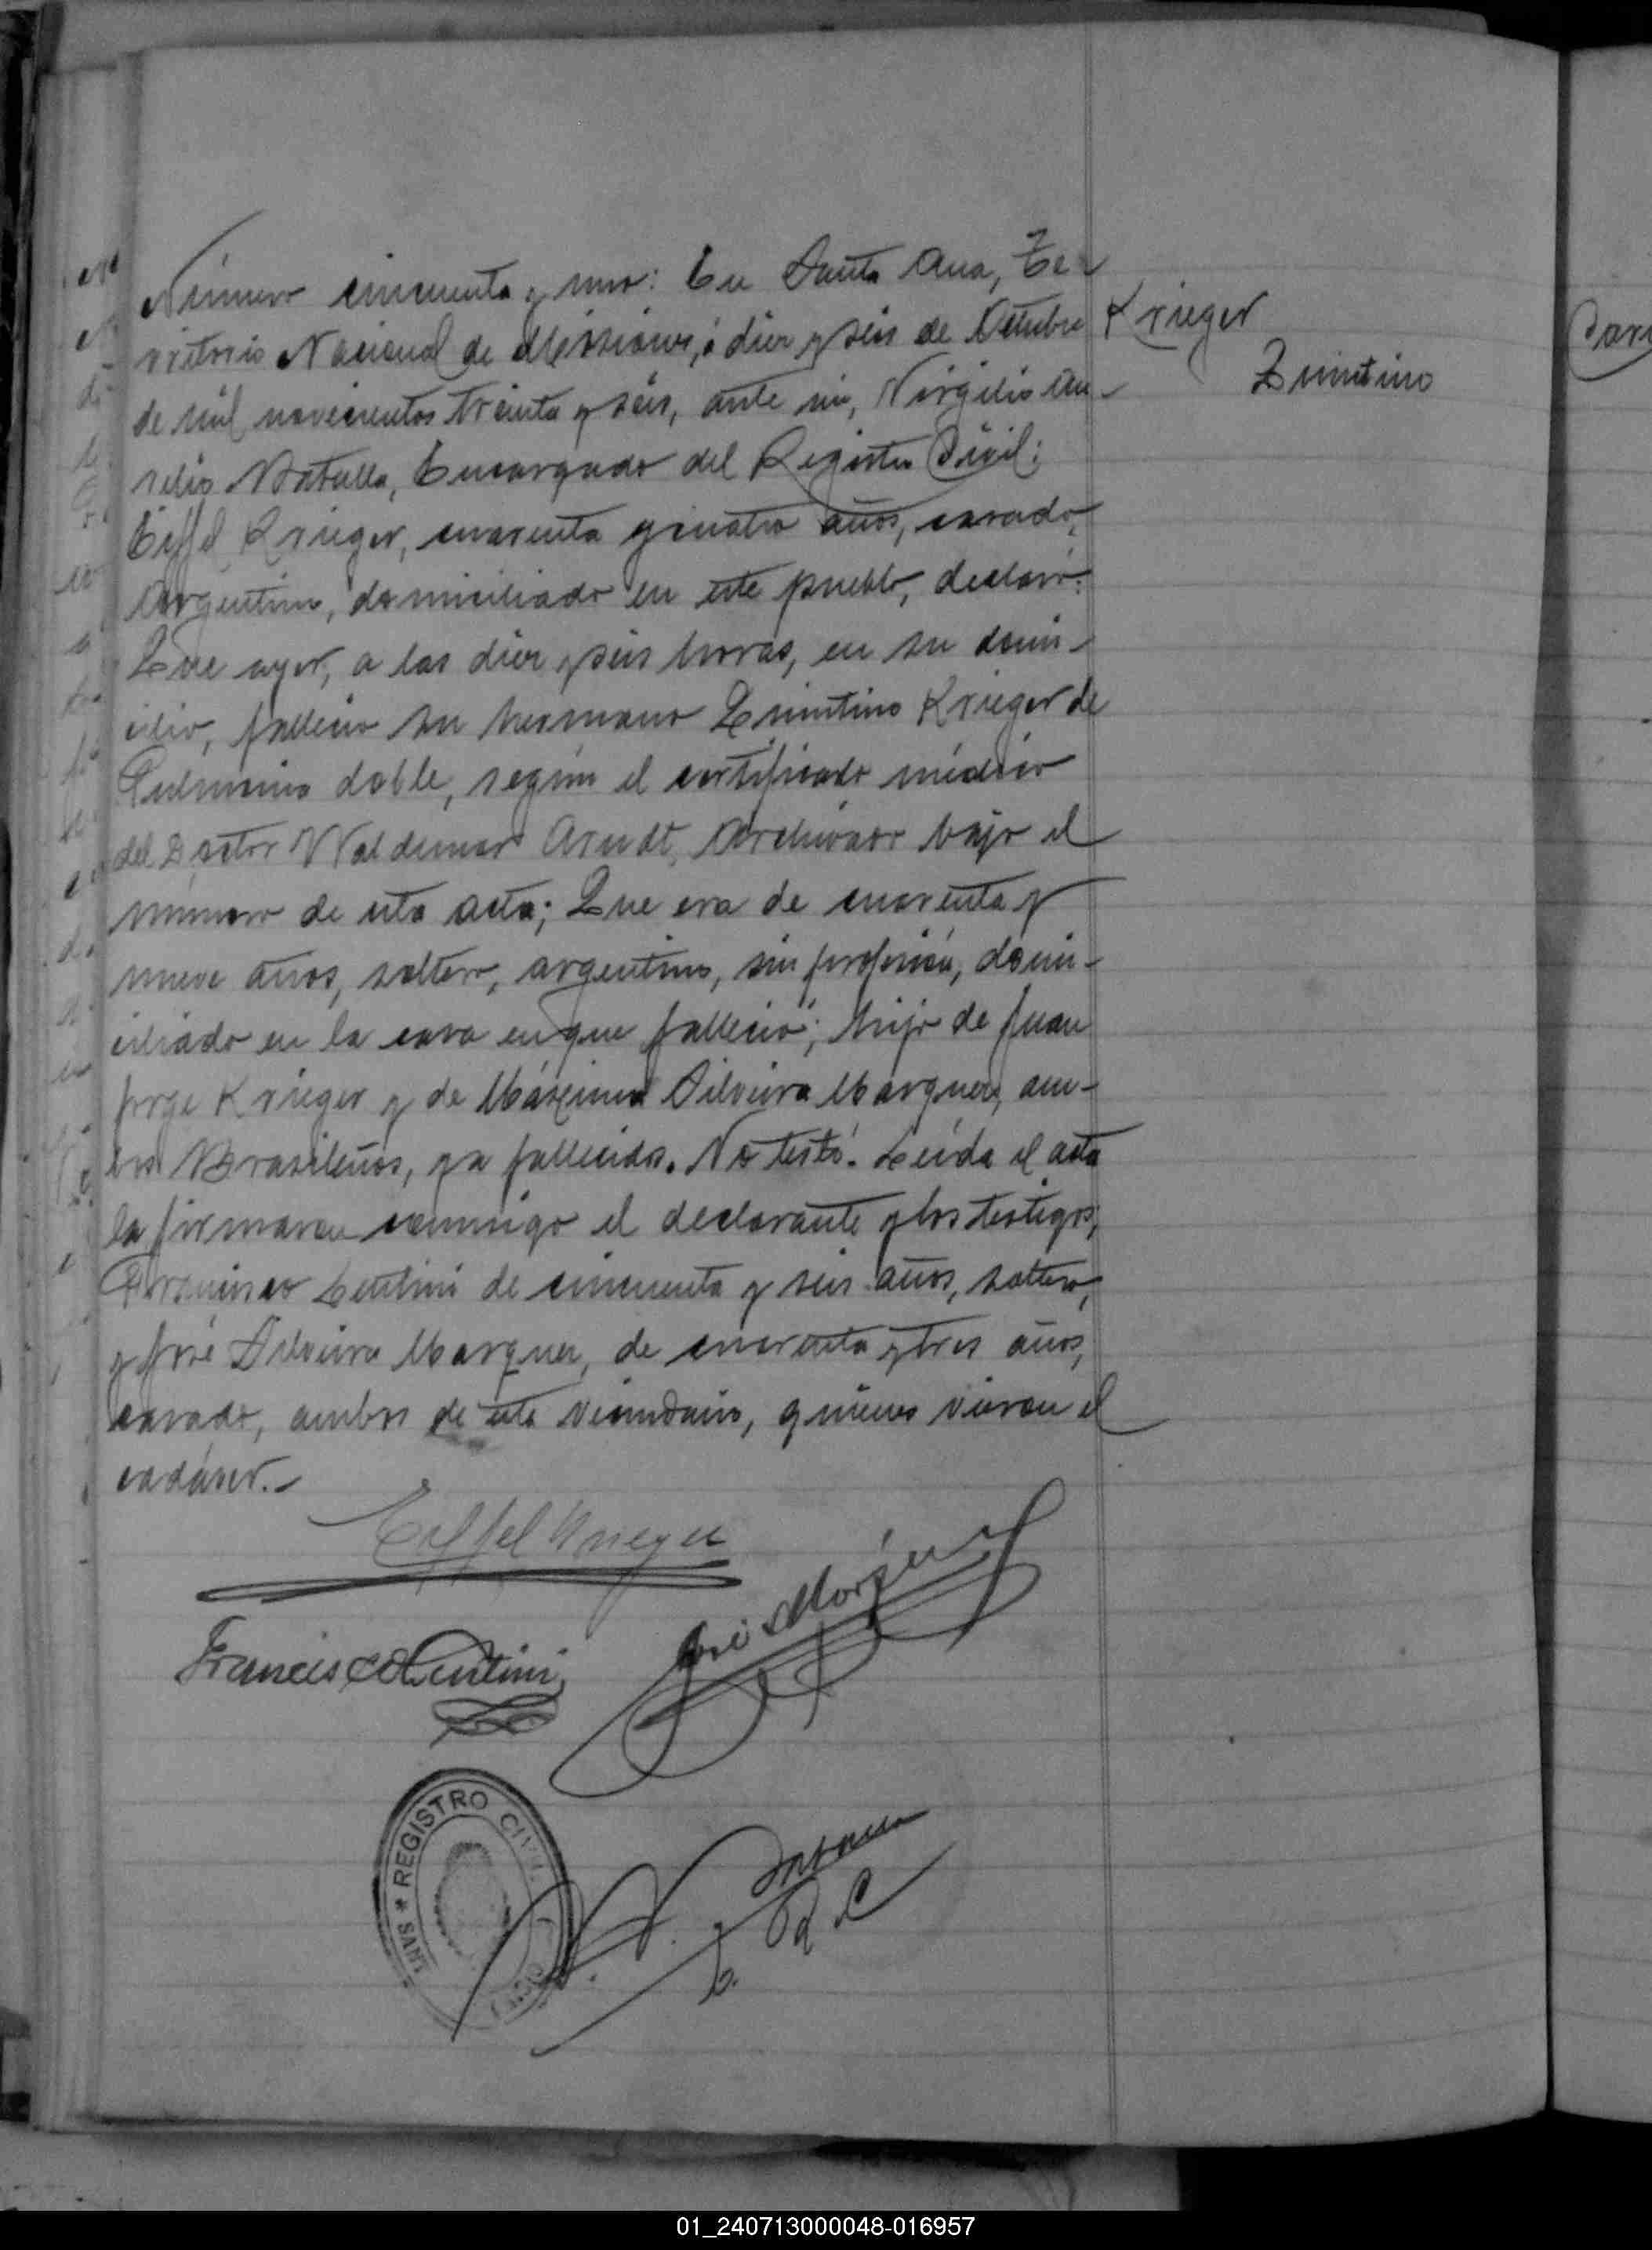 Número cincuenta y uno: En Santa Ana, Te-
rritorio Nacional de Misiones, á diez y seis de Octubre
de mil novecientos treinta y seis, ante mí, Virgilio Au-
relio Batalla, Encargado del Registro Civil:
Eiffel Krieger, cuarenta y cuatro años, casado,
Argentino, domiciliado en este pueblo, declaró:
Que ayer, a las diez y seis horas, en su domi-
cilio, falleció su hermano Quintino Krieger de
doble, según el certificado médico
del Doctor Waldemar Arndt, Archivado bajo el
número de esta acta; Que era de cuarenta y
nueve años, soltero, argentino, sin profesión, domi-
ciliado en la casa en que falleció; hijo de Juan
Jorge Krieger y de Máxima Silveira Marquez, am-
bos Brasileños, ya fallecidos. No testó. Leída el acta
la firmaron conmigo el declarante y los testigos,
Francisco Lentini de cincuenta y seis años, soltero,
y José Silveira Marquez, de cuarenta y tres años,
casado, ambos de este vecindario, quienes vieron el
cadáver.-
Krieger
Quintino
Eiffel Krieger
José S Marquez
Francisco Lentini
REGISTRO CIVIL
SANT
V. Batalla
E. R C
01_240713000048-016957